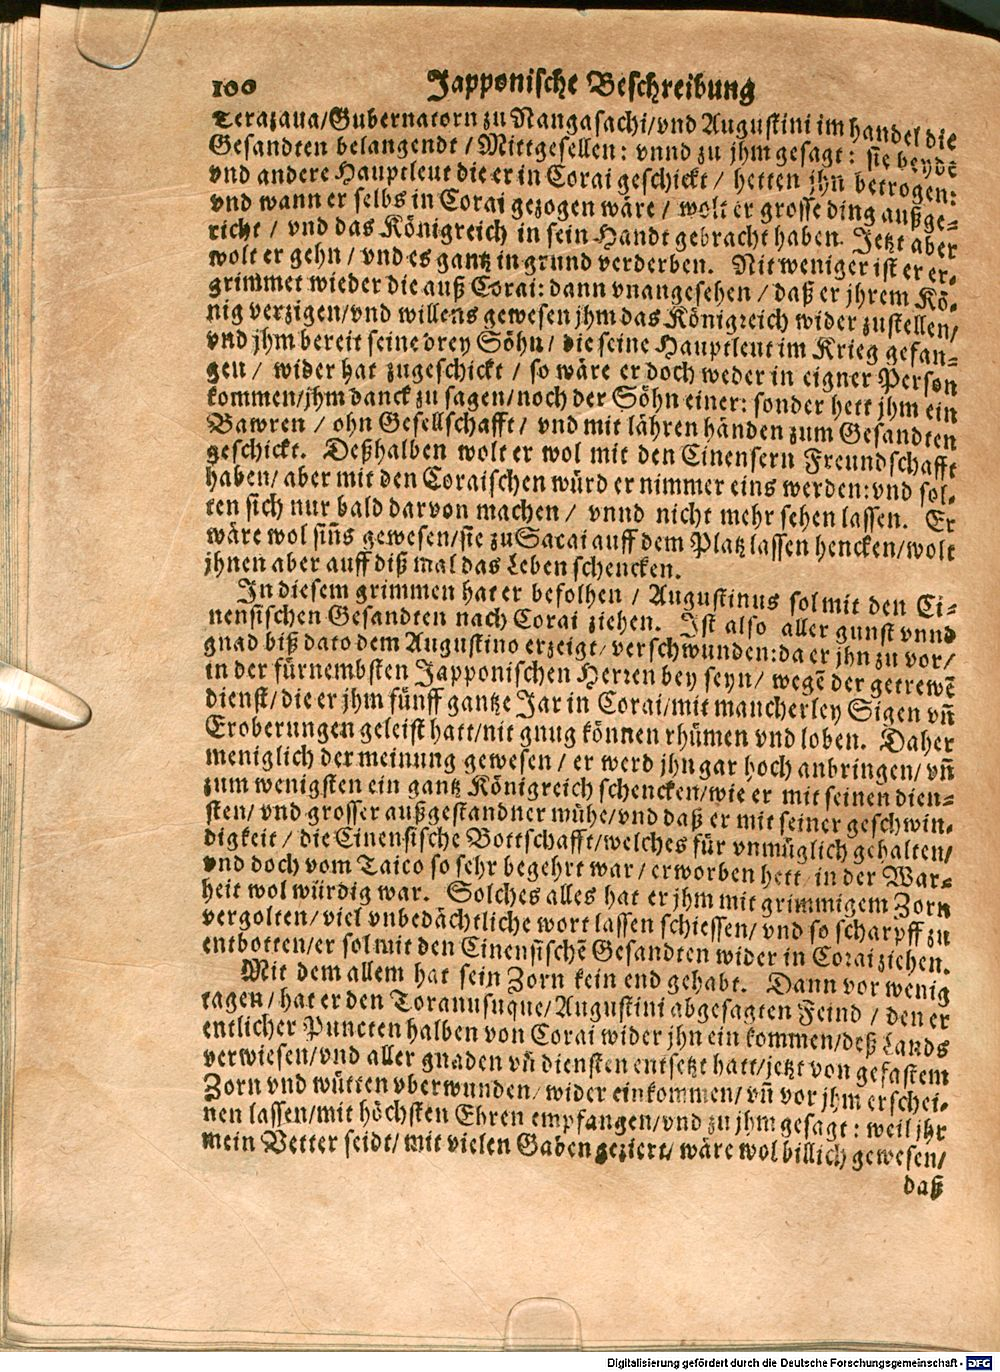 100 Japponische Beschreibung
Terazaua/Gubernatorn zu Nangasachi/vnd Augustini im handel die
Gesandten belangendt / Mittgesellen: vnnd zu jhm gesagt: sie beyde
vnd andere Hauptleut die er in Corai geschickt / hetten jhn betrogen:
vnd wann er selbs in Corai gezogen wäre / wolt er grosse ding außge-
richt / vnd das Königreich in sein Handt gebracht haben. Jetzt aber
wolt er gehn / vnd es gantz in grund verderben. Nit weniger ist er er-
grimmet wieder die auß Corai: dann vnangesehen / daß er jhrem Kö-
nig verzigen/vnd willens gewesen jhm das Königreich wider zustellen/
vnd jhm bereit seine drey Söhn / die seine Hauptleut im Krieg gefan-
gen / wider hat zugeschickt / so wäre er doch weder in eigner Person
kommen/jhm danck zu sagen/noch der Söhn einer: sonder hett jhm ein
Bawren / ohn Gesellschafft / vnd mit lähren händen zum Gesandten
geschickt. Deßhalben wolt er wol mit den Cinensern Freundschafft
haben/ aber mit den Coraischen würd er nimmer eins werden: vnd sol-
ten sich nur bald darvon machen / vnnd nicht mehr sehen lassen. Er
wäre wol sinns gewesen/sie zu Sacai auff dem Platz lassen hencken/wolt
jhnen aber auff diß mal das Leben schencken.
In diesem grimmen hat er befolhen / Augustinus sol mit den Ci-
nensischen Gesandten nach Corai ziehen. Ist also aller gunst vnnd
gnad biß dato dem Augustino erzeigt/ verschwunden: da er jhn zu vor/
in der fürnembsten Japponischen Herren bey seyn/ wegẽ der getrewẽ
dienst/die er jhm fünff gantze Jar in Corai/mit mancherley Sigen vñ
Eroberungen geleist hatt/nit gnug können rhümen vnd loben. Daher
meniglich der meinung gewesen / er werd jhn gar hoch anbringen/ vñ
zum wenigsten ein gantz Königreich schencken/wie er mit seinen dien-
sten/ vnd grosser außgestandner mühe/vnd daß er mit seiner geschwin-
digkeit / die Cinensische Bottschafft/welches für vnmüglich gehalten/
vnd doch vom Taico so sehr begehrt war/ erworben hett/ in der War-
heit wol würdig war. Solches alles hat er jhm mit grimmigem Zorn
vergolten/ viel vnbedächtliche wort lassen schiessen/ vnd so scharpff zu
entbotten/er sol mit den Cinensischẽ Gesandten wider in Corai ziehen.
Mit dem allem hat sein Zorn kein end gehabt. Dann vor wenig
tagen / hat er den Toranusuque/Augustini abgesagten Feind / den er
entlicher Puncten halben von Corai wider jhn ein kommen/deß Lands
verwiesen/vnd aller gnaden vñ diensten entsetzt hatt/jetzt von gefastem
Zorn vnd wütten vberwunden/ wider einkommen/ vñ vor jhm erschei-
nen lassen/mit höchsten Ehren empfangen/vnd zu jhm gesagt: weil jhr
mein Vetter seidt/ mit vielen Gaben geziert/ wäre wol billich gewesen/
daß
Digitalisierung gefördert durch die Deutsche Forschungsgemeinschaft - DFG